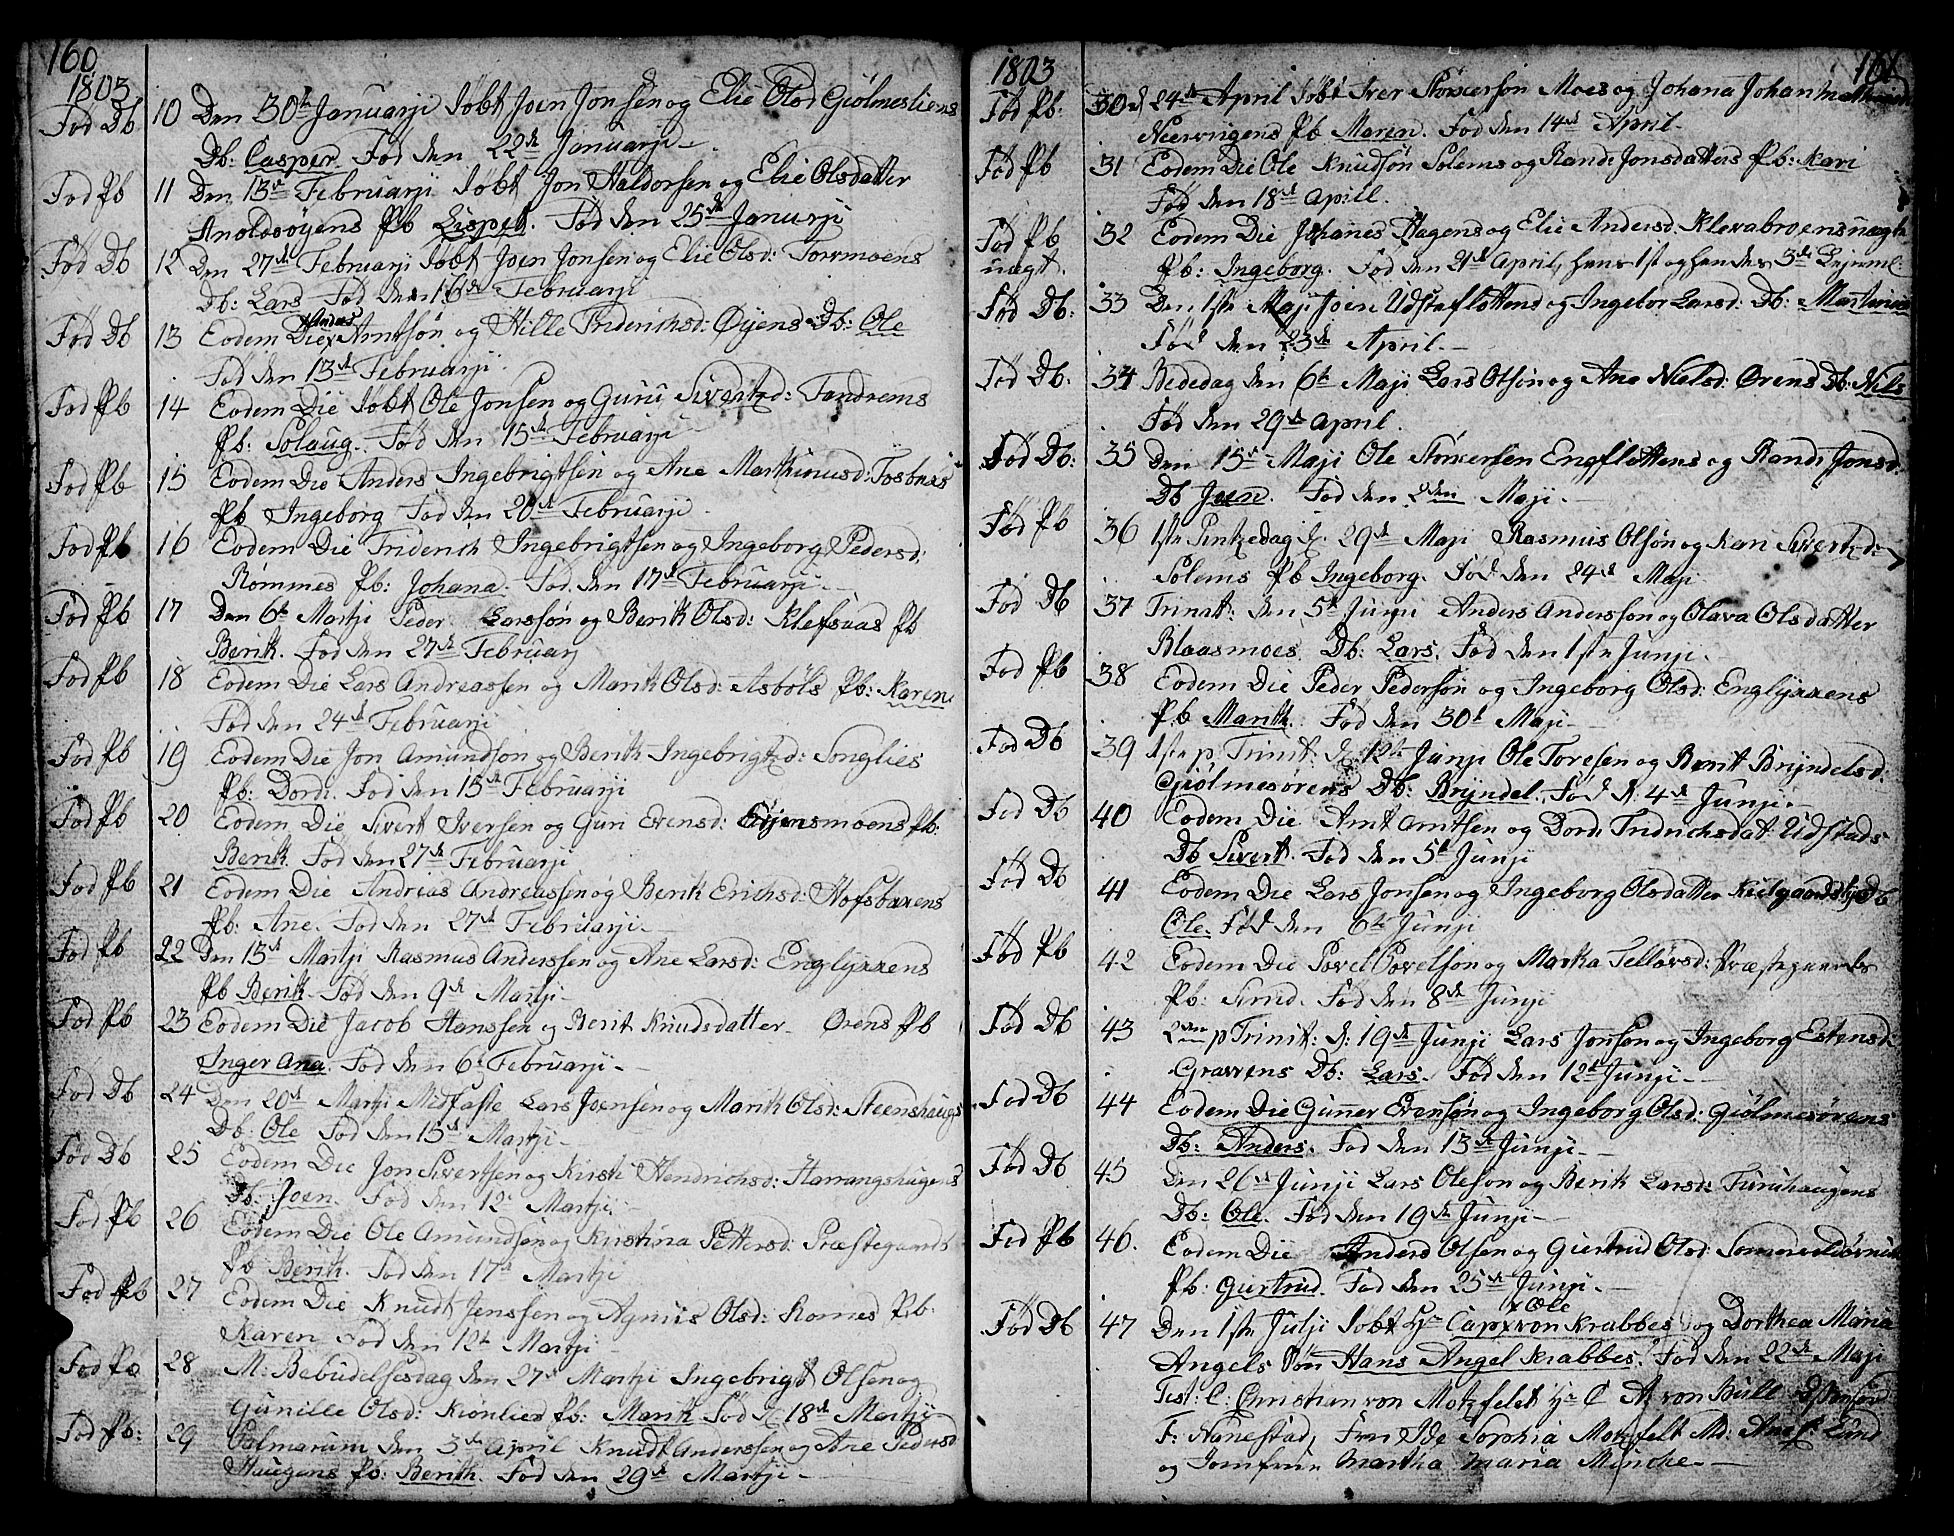 160
1803
Fød Db 10 Den 30te Januarji døbt Joen Jonsen og Elie Olsd Giølmesliens
Db: Casper. Fød den 22de Januarji
Fød Pb 11 Den 13de Februarji døbt Jon Haldorsen og Elie Olsdatter
Pb Lispet. Fød den 25de Januarji
Fød Db 12 Den 27de Februarji døbt Joen Jonsen og Elie Olsd: Tormoens
Db: Lars Fød den 16de Februarji
Fød Db 13 Eodem Die Anders Arntsøn og Hille Friderichsd: Øyens Db: Ole
Fød den 13de Februarji.
Fød Pb 14 Eodem Die døbt Ole Jonsen og Guru Sivertzd: Fandrems
Pb: Solaug. Fød den 15de Februarji
Fød Pb 15 Eodem Die Anders Ingebrigtsen og Ane Marthinusd:
Pb Ingeborg Fød den 20de Februarji
Fød Pb 16 Eodem Die Friderich Ingebrigtsen og Ingeborg Pedersd:
Rømmes Pb: Johana. Fød den 17de Februarji
Fød Pb 17 Den 6te Martji Peder Larssøn og Berit Olsd: Klefsaas Pb
Berit. Fød den 27de Februarj
Fød Pb 18 Eodem Die Lars Andreassen og Marit Olsd: Asbøls Pb: Karen
Fød den 24de Februarji
Fød Pb 19 Eodem Die Jon Amundsøn og Berit Ingebrigtzd: Songlies
Pb: Dordi. Fød den 15de Februarji
Fød Pb 20 Eodem Die Sivert Iversen og Guri Evensd: Pb:
Berit. Fød den 27de Februarji
Fød Pb 21 Eodem Die Andrias Andreassen og Berit Erichsd: Hofsbakens
Pb: Ane. Fød den 27de Februarji
Fød Pb 22 Den 13de Martji Rasmus Anderssen og Ane Larsd: Englykkens
Pb Berit Fød den 9de Martji
Fød Pb 23 Eodem Die Jacob Hanssen og Berit Knudsdatter Ørens Pb
Inger Ana. Fød den 6te Februarji
Fød Db 24 Den 20de Martji Midfaste Lars Joensen og Marit Olsd: Steenshaugs
Db: Ole Fød den 13de Martji
Fød Db 25 Eodem Die Jon Sivertsen og Kirsti Hendrichsd: Harrangshaugens
Db: Joen. Fød den 12te Martji
Fød Pb 26 Eodem Die Ole Amundsen og Kirstina Pettersd: Præstegaards
Pb Berit. Fød den 17de Martji
Fød Pb 27 Eodem Die Knudt Jenssen og Agniis Olsd: Romes Pb:
Karen Fød den 12te Martji
Fød Pb 28 M: Bebudelsesdag den 27de Martji Ingebrigt Olsen og
Gunille Olsd: Kiønlied Pb: Marit Fød d: 18de Martji
Fød Pb: 29 Palmarum den 3de April Knudt Anderssen og Ane Pedersd
Haugens Pb: Berith. Fød den 29de Martji
1803 161
Fød Pb: 30 d 24de April døbt Iver Størcersøn Moes og Johana Johan
Pb Maren. Fød den 14de April
Fød Pb 31 Eodem Die Ole Knudsøn Solems og Randi Jonsdatters Pb: Kari
Fød den 18de April.
Fød Pb uægt. 32 Eodem Die Johanes Hagens og Elie Andersd: Klevabroens uægte
Pb: Ingeborg. Fød den 21de April, hans 1ste og hendes 3die Lejerml
Fød Db: 33 Den 1ste Maji Joen Udstuflottens og Ingebor Larsd: Db: Marthinus
Fød den 23de April
Fød Db. 34 Bededag den 6te Maji Lars Olsøn og Ane Nielsd: Ørens Db: Nils
Fød den 29de April.
Fød Db: 35 Den 15de Maji Ole Størcersen Engflottens og Randi Jonsd:
Db Joen. Fød den 2den Maji
Fød Pb 36 1ste Pintzedag d: 29de Maji Rasmus Olsøn og Kari Sivertzd:
Solems Pb Ingeborg. Fød den 24de Maji
Fød Db 37 Trinit: den 5te Junji Anders Anderssøn og Olava Olsdatter
Blaasmoes Db: Lars. Fød den 1ste Junji
Fød Pb 38 Eodem Die Peder Pedersøn og Ingeborg Olsd: Englykkens
Pb Marit. Fød den 30te Maji
Fød Db 39 1ste p. Trinit. d: 12te Junji Ole Toresen og Berit Bryndelsd:
Giølmesørens Db: Bryndel. Fød d: 4de Junji
Fød Db 40 Eodem Die Arnt Arntsen og Dordi Fridrichsdat: Udstads
Db Sivert. Fød den 5te Junji
Fød Db 41 Eodem Die Lars Jonsen og Ingeborg Olsdatter Db
Ole. Fød den 6te Junji
Fød Pb 42 Eodem Die Povel Povelsøn og Marha Tellevsd: Præstegaards
Pb: Sirid. Fød den 8de Junji
Fød Db 43 2den p Trinit: d: 19de Junji Lars Jonsøn og Ingeborg Estensd:
Gravens Db: Lars. Fød den 12te Junji
Fød Db 44 Eodem Die Gunner Evensøn og Ingeborg Olsd: Giølmesørens
Db: Anders. Fød den 13de Junji
Fød Db 45 Den 26de Junji Lars Olessøn og Berit Larsd: Furuhaugens
Db: Ole. Fød den 19de Junji
Fød Pb 46. Eodem Die Anders Olsen og Giertrud Olsd:
Pb: Giertrud. Fød den 25de Junji
Fød Db 47 Den 1ste Julji døbt Hr Capt Ole von Krabbes og Dorthea Maria
Angels Søn Hans Angel Krabbes. Fød den 22de Maji
Test: C: Christian von Motzfelt Hr C A von Bull
F: Nanestad, Frue Ide Sophia Motzfelt Md: Lund
og Jomfrue Martha Maria Minche